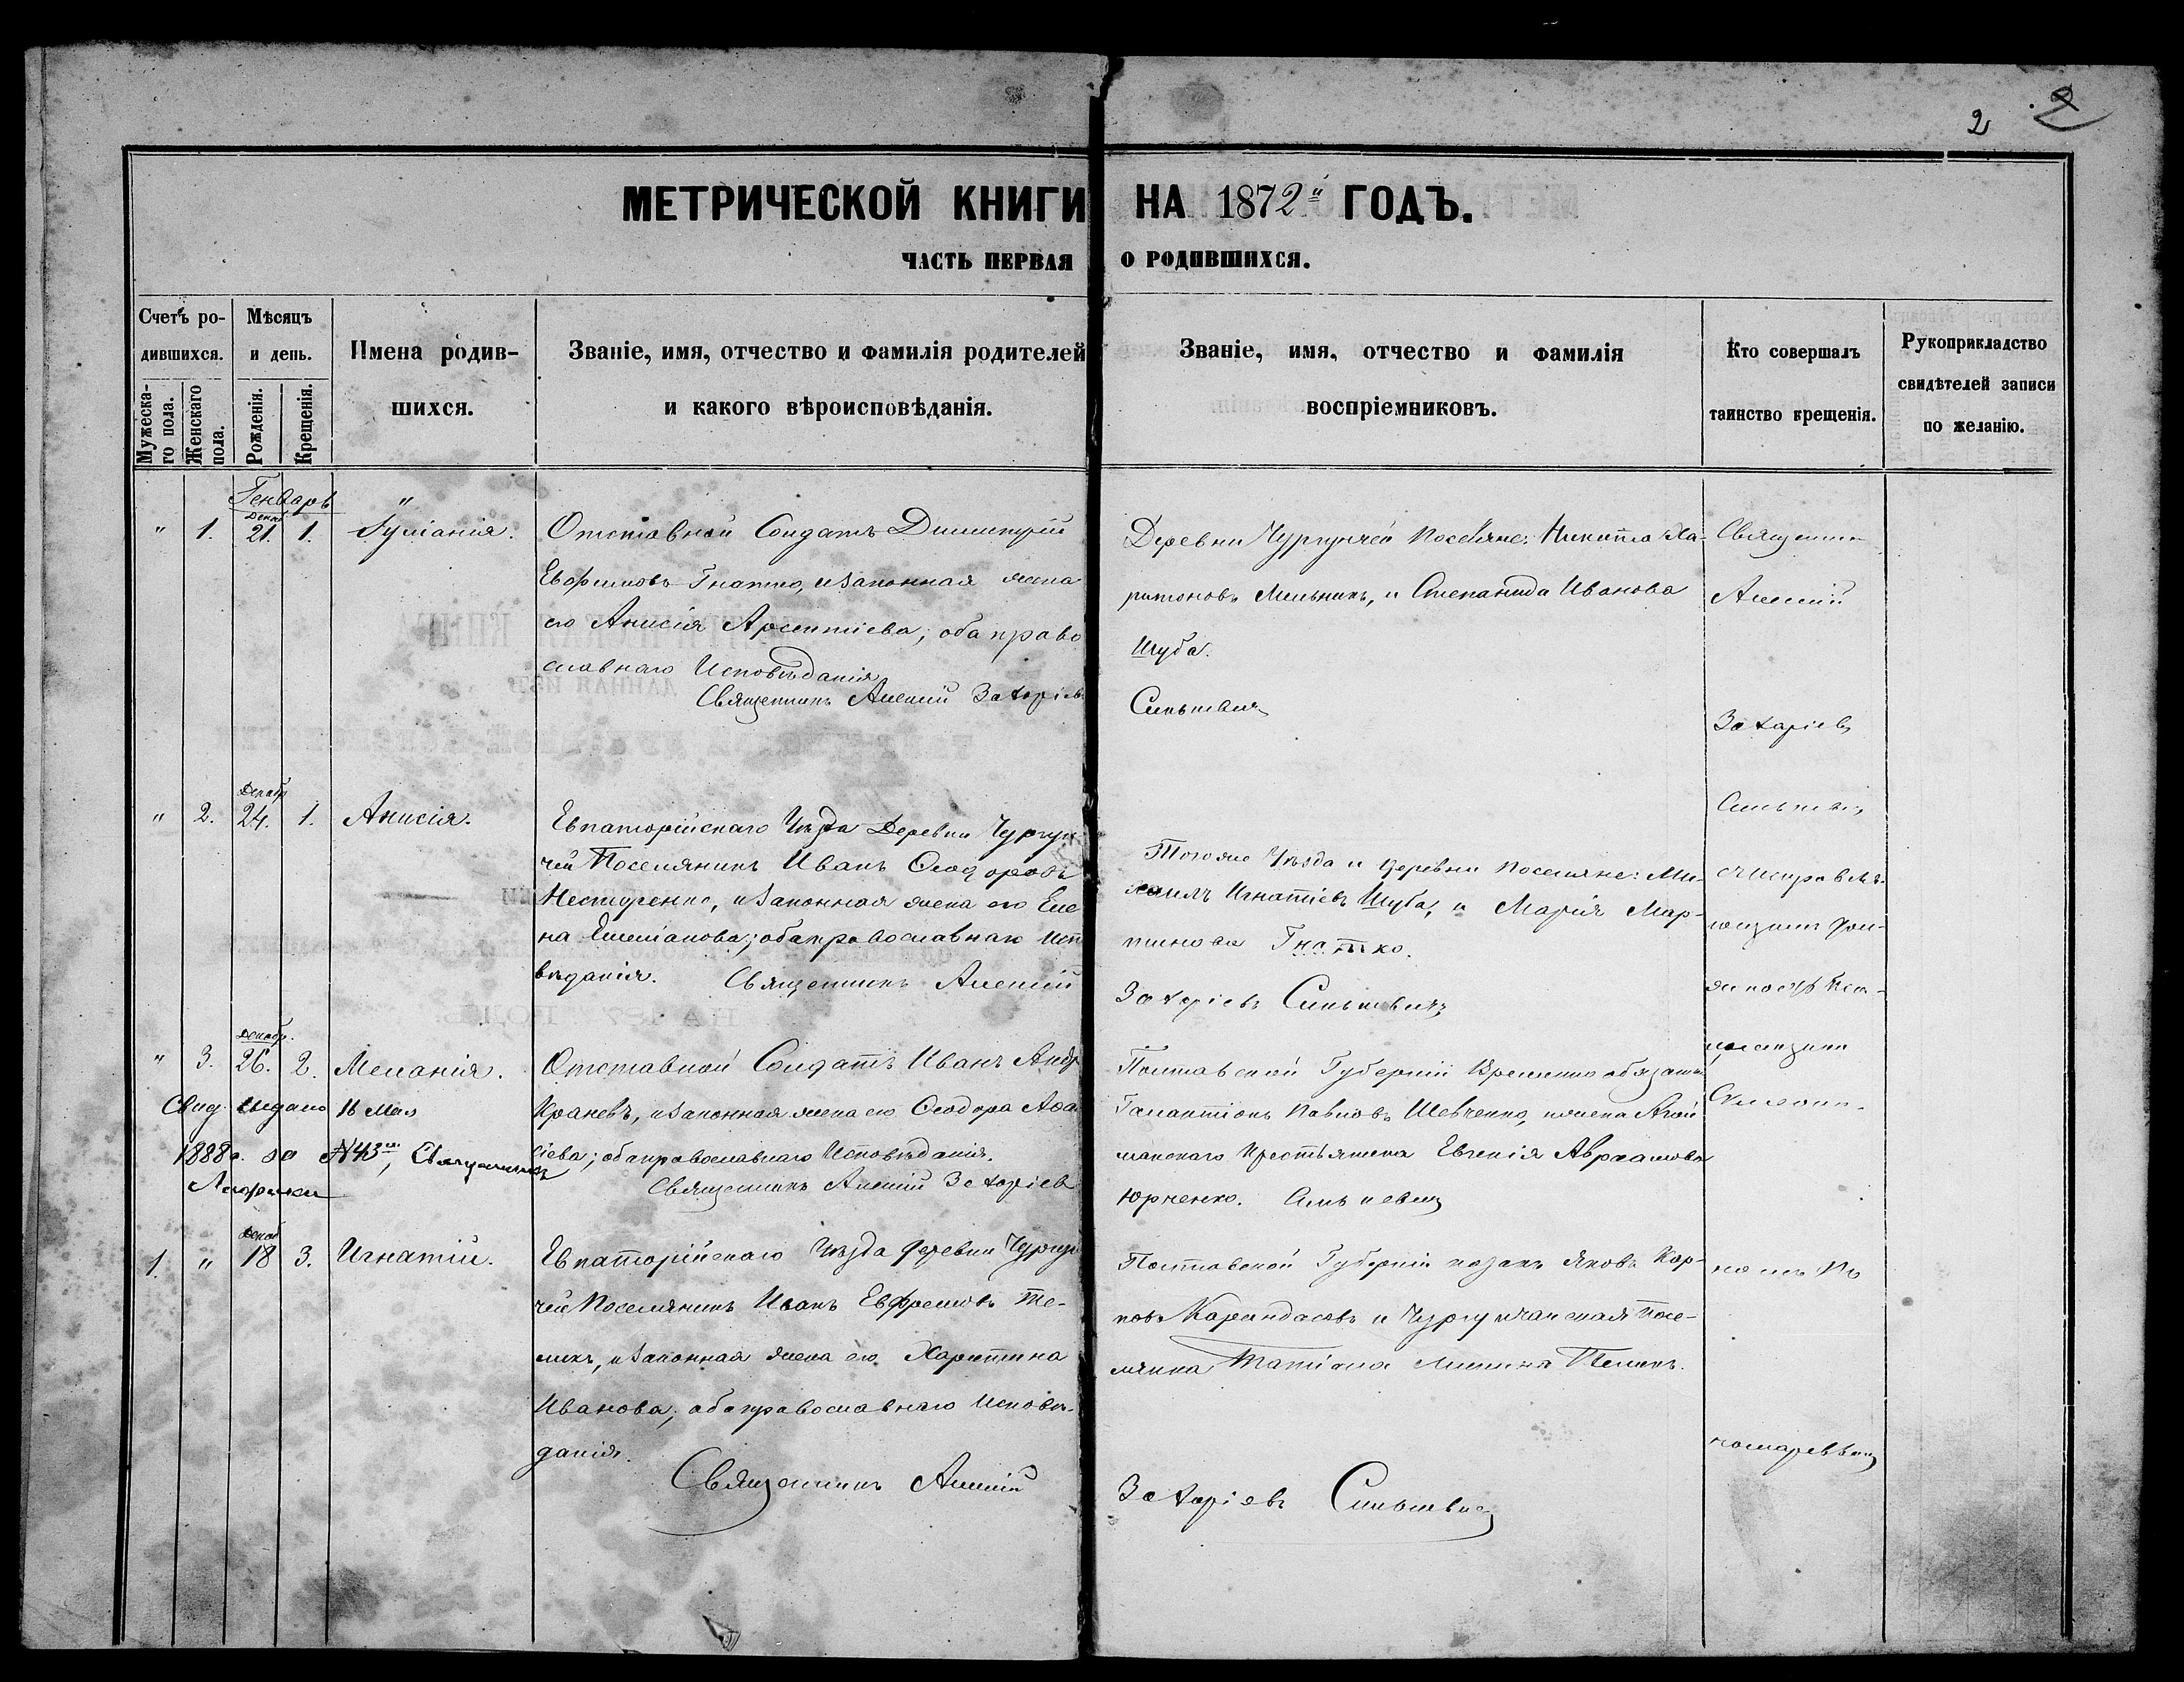 2 2
МЕТРИЧЕСКОЙ КНИГИ НА 1872й ГОДЪ.
ЧАСТЬ ПЕРВАЯ О РОДИВШИХСЯ.
Счетъ ро-
дившихся.
Мужеска-
го пола.
Женскаго
пола.
Мѣсяцъ
и день.
Рожденія.
Крещенія.
Имена родив-
шихся.
Званіе, имя, отчество и фамилія родителей
и какого вѣроисповѣданія.
Званіе, имя, отчество и фамилія
воспріемниковъ.
Кто совершалъ
таинство крещенія.
Рукоприкладство
свидѣтелей записи
по желанію.
Генварь
" 1. Дека 21. 1. Іуліанія.
Отставной Солдатъ Димитрій
Евфимовъ Гнатко, и законная жена
его Анисія Арсентіева; оба право
славнаго Исповѣданія
Священникъ Алексій Захаріевъ
Деревни Чургунчей Поселяне: Никита Ха-
ритоновъ Мельникъ, и Степанида Иванова
Шуба.
Синькевичъ
Священник
Алексій
Захаріевъ
" 2. Декабр 24. 1. Анисія.
Евпаторійскаго Уѣзда Деревни Чургун
чей Поселянинъ Иванъ Ѳеодоровъ
Нестеренко, и законная жена его Еле
на Емиліанова; оба православнаго Исп
вѣданія. Священникъ Алексій
Того же Уѣзда и деревни поселяне: Ми-
хаилъ Игнатіевъ Шуба, и Марія Мар-
тинова Гнатко.
Захаріевъ Синькевичъ
" 3. Декабр. 26. 2. Меланія.
Свид. выдано 16 Мая
1888 г. за №43м, Священникъ
Отставной Солдатъ Иванъ Андр
Краневъ, и законная жена его Ѳеодора Аѳа
сіева; оба православнаго Исповѣданія.
Священникъ Алексій Захаріев
Полтавской Губерніи Временно обязанн
Галактіонъ Павловъ Шевченко, и жена
Крестьянина Евгенія Авраамова
Юрченко. Синькевичъ
1. " Декаб 18 3. Игнатій.
Евпаторійскаго Уѣзда деревни Чургун
чей Поселянинъ Иванъ Евфремовъ Пе-
лихъ, и законная жена его Харитина
Иванова; оба православнаго Исповѣ-
данія.
Священникъ Алексій
Полтавской Губерніи козакъ Яковъ Кар-
повъ Карандасовъ и Чургунчанская Посе-
лянка Татіана
Захаріевъ Синькевичъ